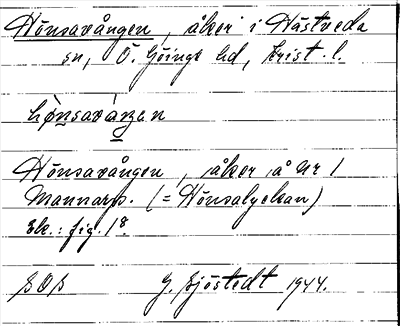 Hönsavången, åker i Hästveda
sn, Ö. Göinge hd, Krist. l.
hø̀nsavàṅen
Hönsavången, åker å Nr 1
Mannarp. (= Hönsalyckan)
Sk.: fig. 18.
SOS G. Sjöstedt 1944.